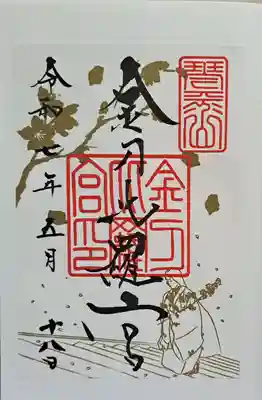 琴平山
金刀比羅宮
金刀比羅宮印
令和七年五月十八日